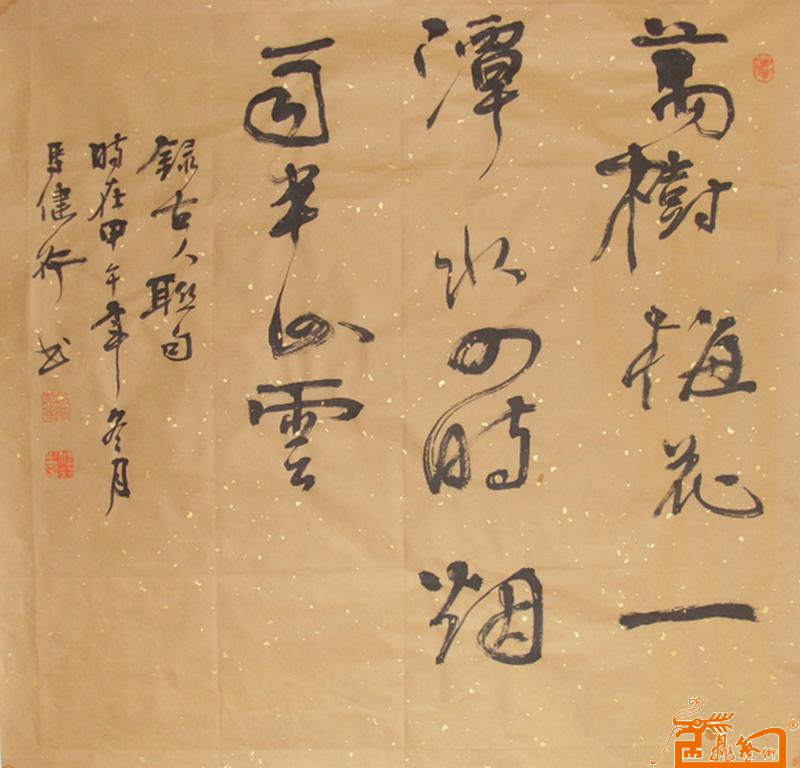 萬樹梅花一
潭水四時烟
雨半山雲
錄古人聯句
時在甲午年冬月
馬健行书